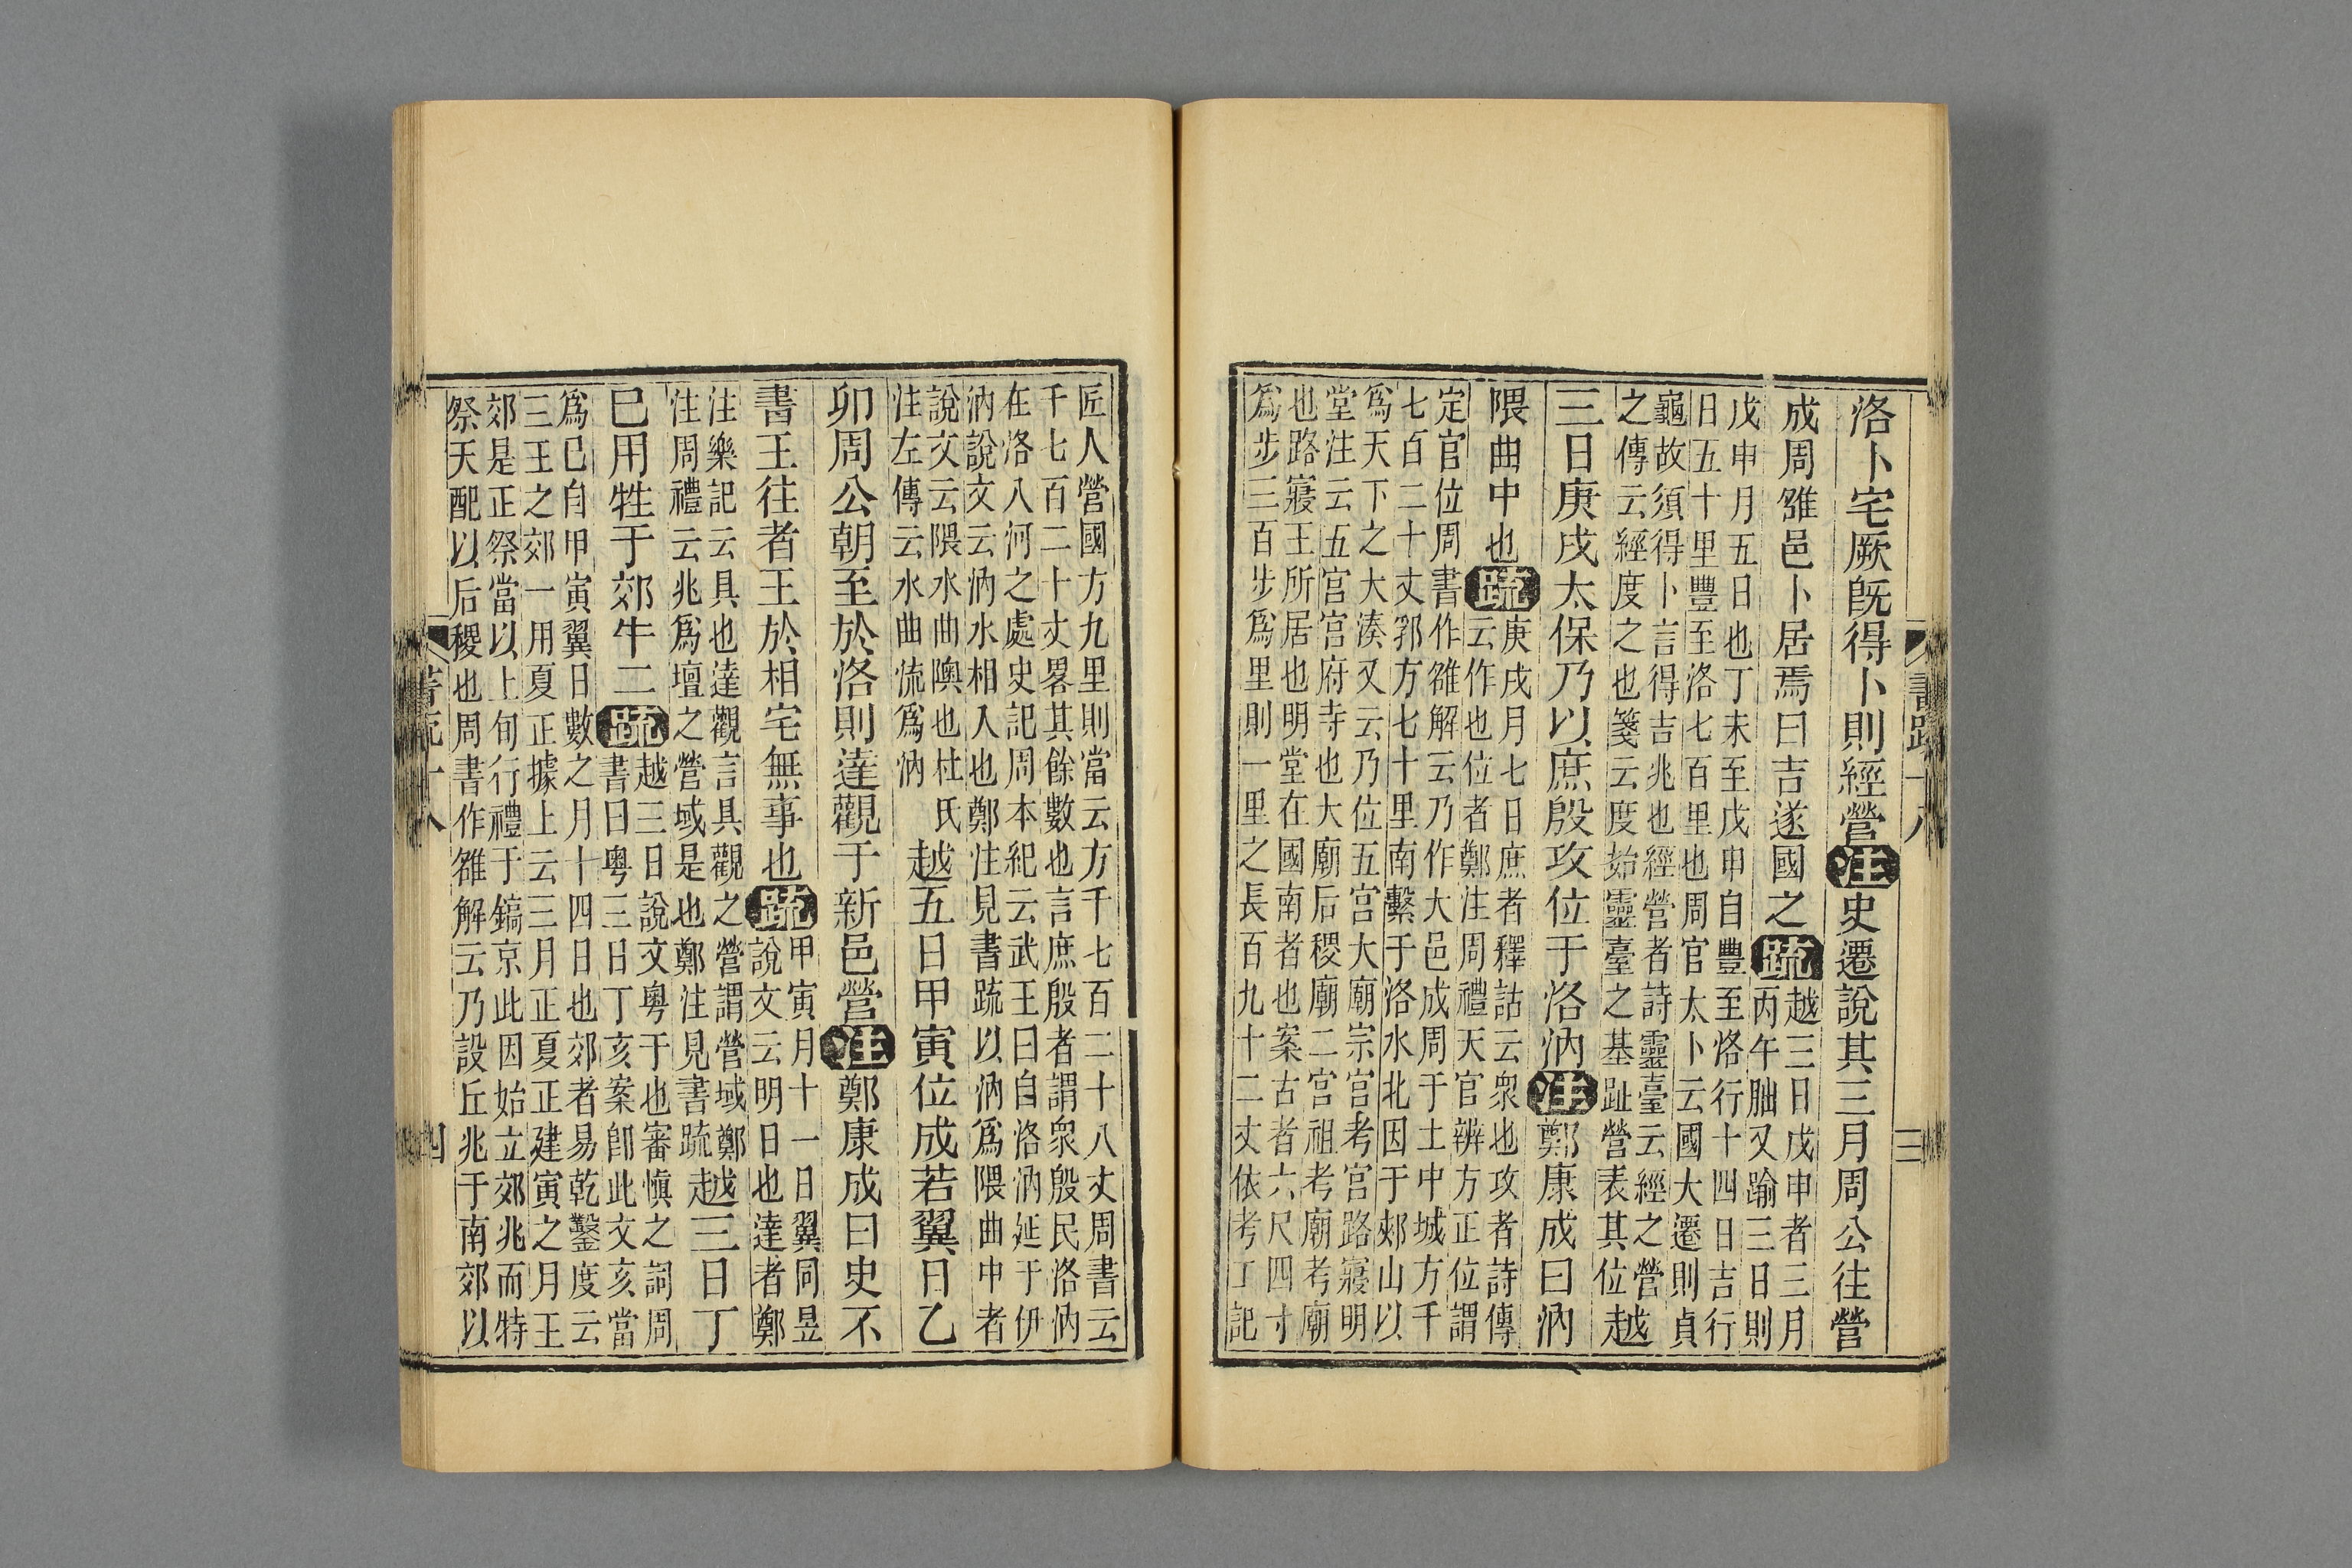 書疏十八
三
洛卜宅厥旣得卜則經營注史遷說其三月周公往營
成周雒邑卜居焉曰吉遂國之疏越三日戊申者三月
丙午朏又踰三日則
戊申月五日也丁未至戊申自豐至洛行十四日吉行
日五十里豐至洛七百里也周官太卜云國大遷則貞
龜故須得卜言得吉兆也經營者詩靈臺云經之營
之傳云經度之也箋云度始靈臺之基趾營表其位越
三日庚戌太保乃以庶殷攻位于洛汭注鄭康成曰汭
隈曲中也疏庚戌月七日庶者釋詁云衆也攻者詩傳
云作也位者鄭注周禮天官辨方正位謂
定官位周書作雒解云乃作大邑成周于土中城方千
七百二十丈郛方七十里南繫于洛水北因于郟山以
爲天下之大湊又云乃位五宮大廟宗宮考宮路寢明
堂注云五宮宮府寺也大廟后稷廟二宮祖考廟考廟
也路寢王所居也明堂在國南者也案古者六尺四寸
爲步三百步爲里則一里之長百九十二丈依考工記
匠人營國方九里則當云方千七百二十八丈周書云
千七百二十丈畧其餘數也言庶殷者謂衆殷民洛汭
在洛入河之處史記周本紀云武王曰自洛汭延于伊
汭說文云汭水相入也鄭注見書疏以汭爲隈曲中者
說文云隈水曲隩也杜氏
注左傳云水曲流爲汭越五日甲寅位成若翼日乙
卯周公朝至於洛則達觀于新邑營注鄭康成曰史不
書王往者王於相宅無事也疏甲寅月十一日翼同昱
說文云明日也達者鄭
注樂記云具也達觀言具觀之營謂營域鄭
注周禮云兆爲壇之營域是也鄭注見書疏越三日丁
巳用牲于郊牛二疏越三日說文粵于也審愼之詞周
書曰粵三日丁亥案卽此文亥當
爲巳自甲寅翼日數之月十四日也郊者易乾鑿度云
三王之郊一用夏正據上云三月正夏正建寅之月王
郊是正祭當以上旬行禮于鎬京此因始立郊兆而特
祭天配以后稷也周書作雒解云乃設丘兆于南郊以
四